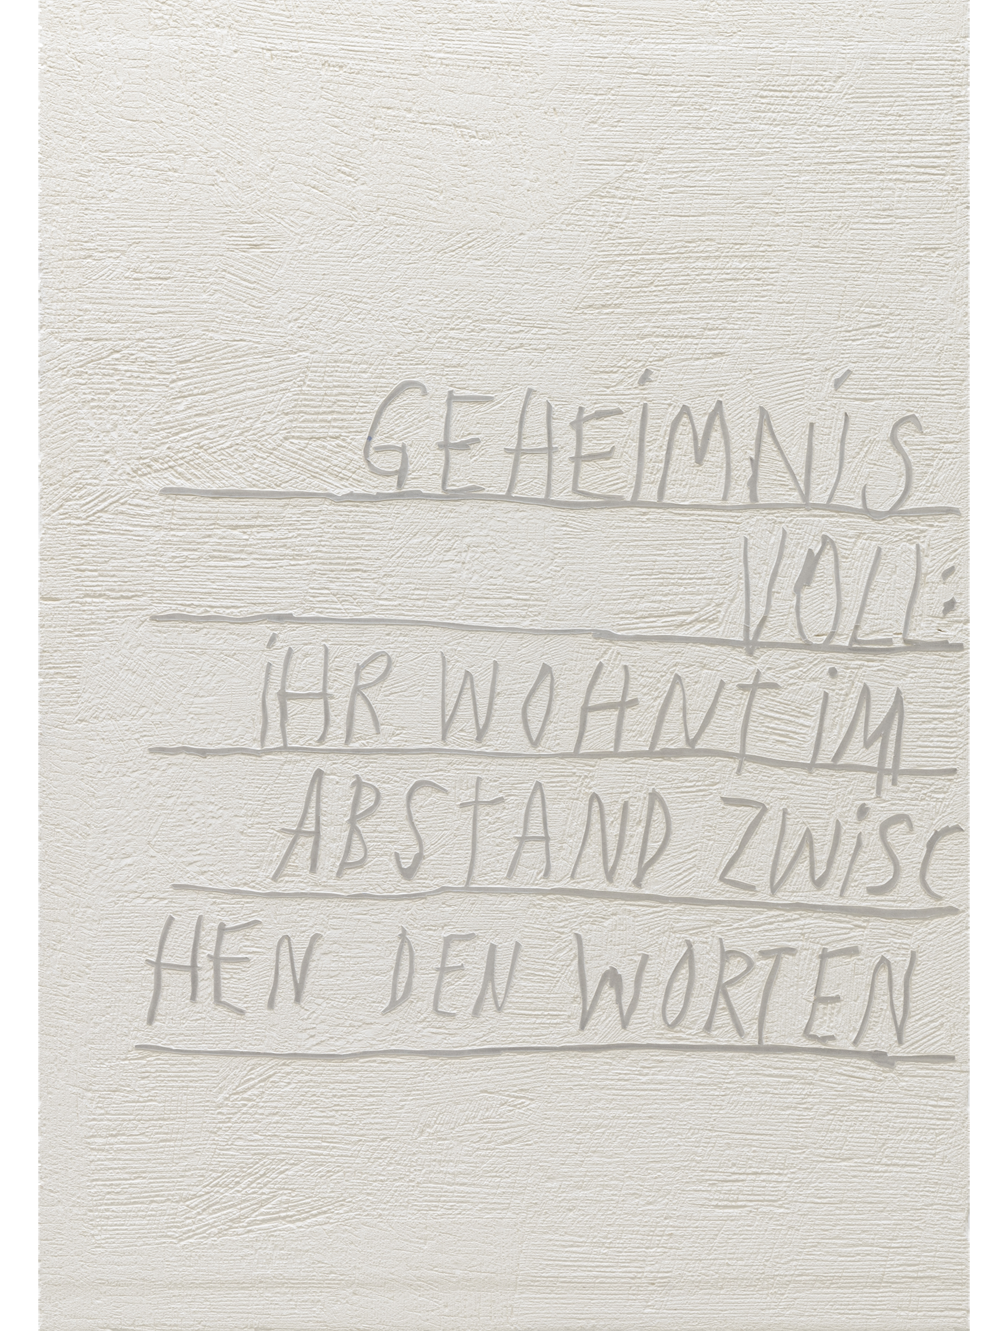 GEHEiMNiS
VOLL:
iHR WOHNT iM
ABSTAND ZWiSC
HEN DEN WORTEN